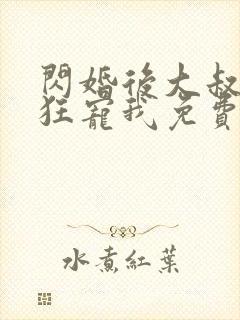 閃婚後大叔
狂寵我免費
水煮紅葉